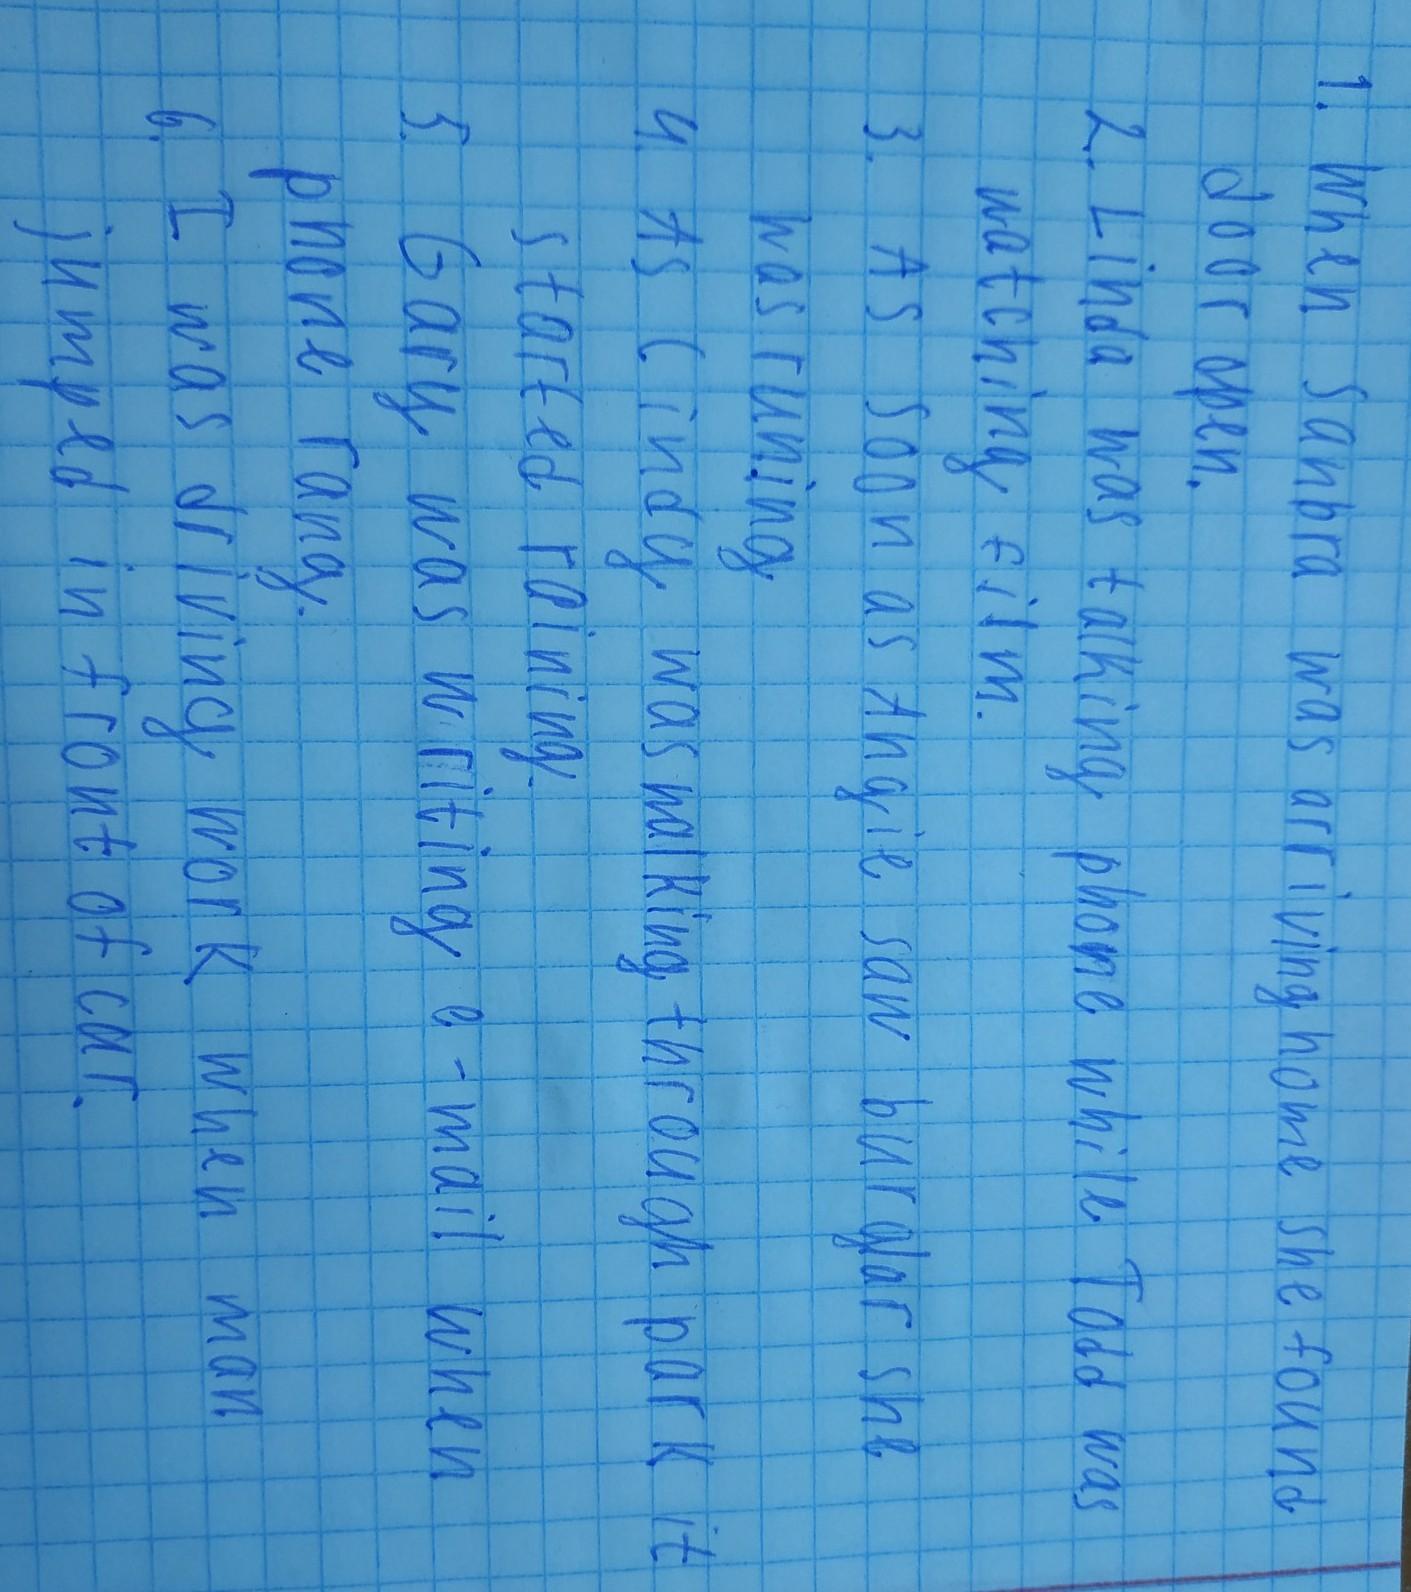 1. When Sanbra was arriving home she found
door open.
2. Linda was talking phone while Todd was
watching film.
3. As soon as Angie saw burglar she
was runing
4. As Cindy was walking through park it
started raining.
5. Gary was writing e-mail when
phone rang.
6. I was driving work when man
jumped in front of car.